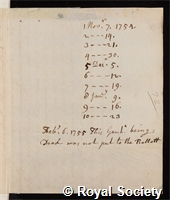 1 Nov.r 7. 1754.
2 — 14.
3 — 21.
4 — 30.
5 Dec. 5.
6 — 12.
7 — 19.
8 Jan.y 9.
9 — 16.
10 — 23
Feb.y 6. 1755 This Gent.n being
Dead was not put to the Ballott
© Royal Society